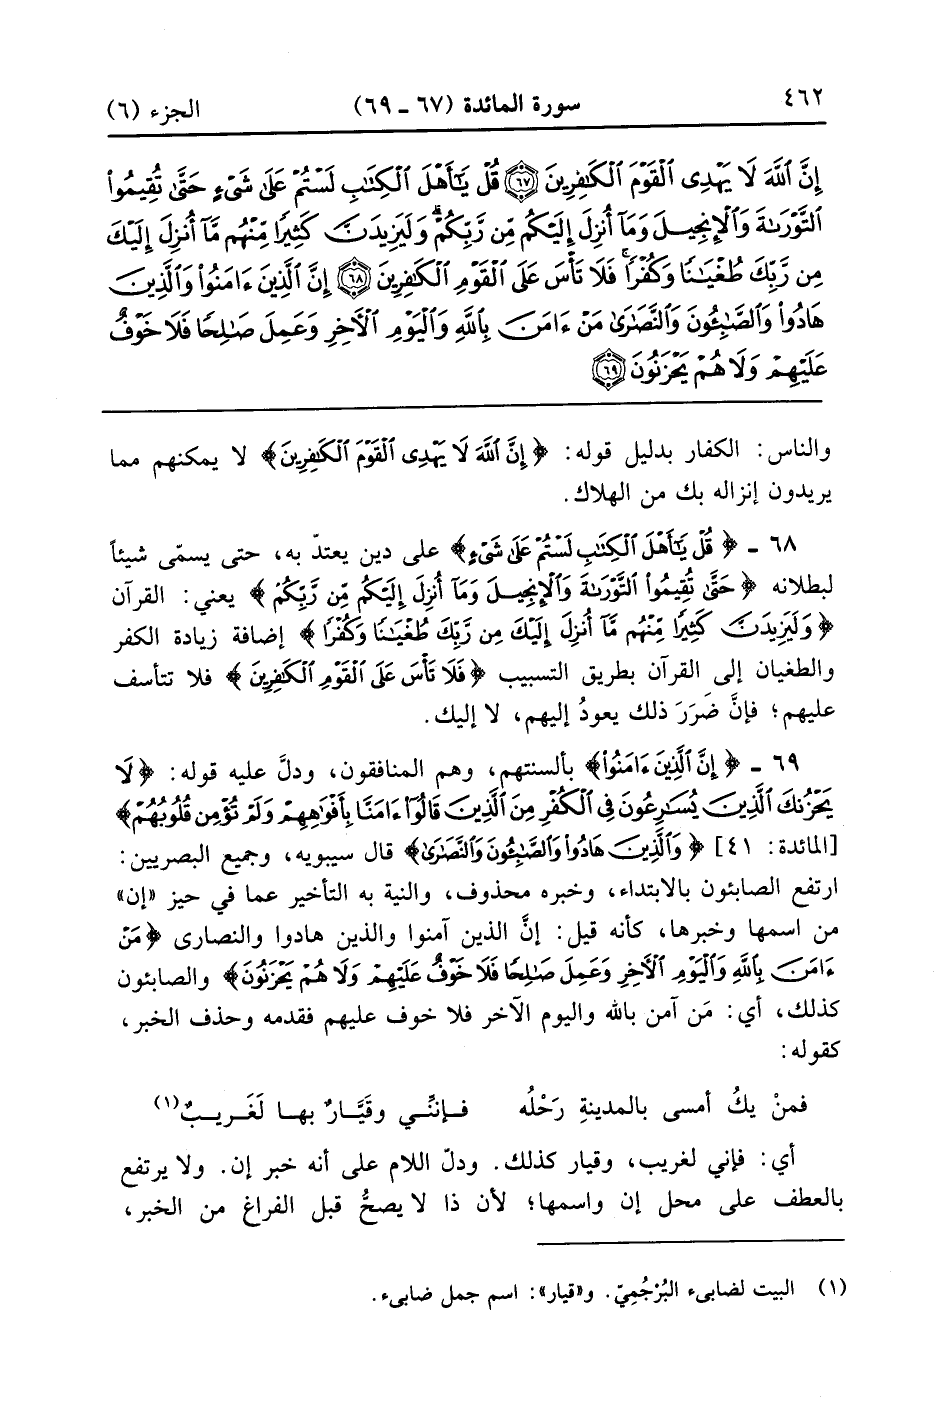 ٤٦٢ سورة المائدة (٦٧ ـ ٦٩) الجزء (٦)
إِنَّ ٱللَّهَ لَا يَهْدِى ٱلْقَوْمَ ٱلْكَـٰفِرِينَ ﴿٦٧﴾ قُلْ يَـٰٓأَهْلَ ٱلْكِتَـٰبِ لَسْتُمْ عَلَىٰ شَىْءٍ حَتَّىٰ تُقِيمُوا۟
ٱلتَّوْرَىٰةَ وَٱلْإِنجِيلَ وَمَآ أُنزِلَ إِلَيْكُم مِّن رَّبِّكُمْ ۗ وَلَيَزِيدَنَّ كَثِيرًا مِّنْهُم مَّآ أُنزِلَ إِلَيْكَ
مِن رَّبِّكَ طُغْيَـٰنًا وَكُفْرًا ۖ فَلَا تَأْسَ عَلَى ٱلْقَوْمِ ٱلْكَـٰفِرِينَ ﴿٦٨﴾ إِنَّ ٱلَّذِينَ ءَامَنُوا۟ وَٱلَّذِينَ
هَادُوا۟ وَٱلصَّـٰبِـُٔونَ وَٱلنَّصَـٰرَىٰ مَنْ ءَامَنَ بِٱللَّهِ وَٱلْيَوْمِ ٱلْـَٔاخِرِ وَعَمِلَ صَـٰلِحًا فَلَا خَوْفٌ
عَلَيْهِمْ وَلَا هُمْ يَحْزَنُونَ ﴿٦٩﴾
والناس: الكفار بدليل قوله: ﴿إِنَّ ٱللَّهَ لَا يَهْدِى ٱلْقَوْمَ ٱلْكَـٰفِرِينَ﴾ لا يمكنهم مما
يريدون إنزاله بك من الهلاك.
٦٨ ـ ﴿قُلْ يَـٰٓأَهْلَ ٱلْكِتَـٰبِ لَسْتُمْ عَلَىٰ شَىْءٍ﴾ على دين يعتدّ به، حتى يسمّى شيئاً
لبطلانه ﴿حَتَّىٰ تُقِيمُوا۟ ٱلتَّوْرَىٰةَ وَٱلْإِنجِيلَ وَمَآ أُنزِلَ إِلَيْكُم مِّن رَّبِّكُمْ﴾ يعني: القرآن
﴿وَلَيَزِيدَنَّ كَثِيرًا مِّنْهُم مَّآ أُنزِلَ إِلَيْكَ مِن رَّبِّكَ طُغْيَـٰنًا وَكُفْرًا﴾ إضافة زيادة الكفر
والطغيان إلى القرآن بطريق التسبيب ﴿فَلَا تَأْسَ عَلَى ٱلْقَوْمِ ٱلْكَـٰفِرِينَ﴾ فلا تتأسف
عليهم؛ فإنَّ ضَرَرَ ذلك يعودُ إليهم، لا إليك.
٦٩ ـ ﴿إِنَّ ٱلَّذِينَ ءَامَنُوا۟﴾ بألسنتهم، وهم المنافقون، ودلَّ عليه قوله: ﴿لَا
يَحْزُنكَ ٱلَّذِينَ يُسَـٰرِعُونَ فِى ٱلْكُفْرِ مِنَ ٱلَّذِينَ قَالُوٓا۟ ءَامَنَّا بِأَفْوَٰهِهِمْ وَلَمْ تُؤْمِن قُلُوبُهُمْ﴾
[المائدة: ٤١] ﴿وَٱلَّذِينَ هَادُوا۟ وَٱلصَّـٰبِـُٔونَ وَٱلنَّصَـٰرَىٰ﴾ قال سيبويه، وجميع البصريين:
ارتفع الصابئون بالابتداء، وخبره محذوف، والنية به التأخير عما في حيز «إن»
من اسمها وخبرها، كأنه قيل: إنَّ الذين آمنوا والذين هادوا والنصارى ﴿مَنْ
ءَامَنَ بِٱللَّهِ وَٱلْيَوْمِ ٱلْـَٔاخِرِ وَعَمِلَ صَـٰلِحًا فَلَا خَوْفٌ عَلَيْهِمْ وَلَا هُمْ يَحْزَنُونَ﴾ والصابئون
كذلك، أي: مَن آمن بالله واليوم الآخر فلا خوف عليهم فقدمه وحذف الخبر،
كقوله:
فمنْ يكُ أمسى بالمدينةِ رَحْلُه فـإنـنَّـي وقَيَّـارٌ بهـا لَغَـريـبٌ(١)
أي: فإني لغريب، وقيار كذلك. ودلّ اللام على أنه خبر إن. ولا يرتفع
بالعطف على محل إن واسمها؛ لأن ذا لا يصحُّ قبل الفراغ من الخبر،
(١) البيت لضابىء البُرْجُميّ. و«قيار»: اسم جمل ضابىء.